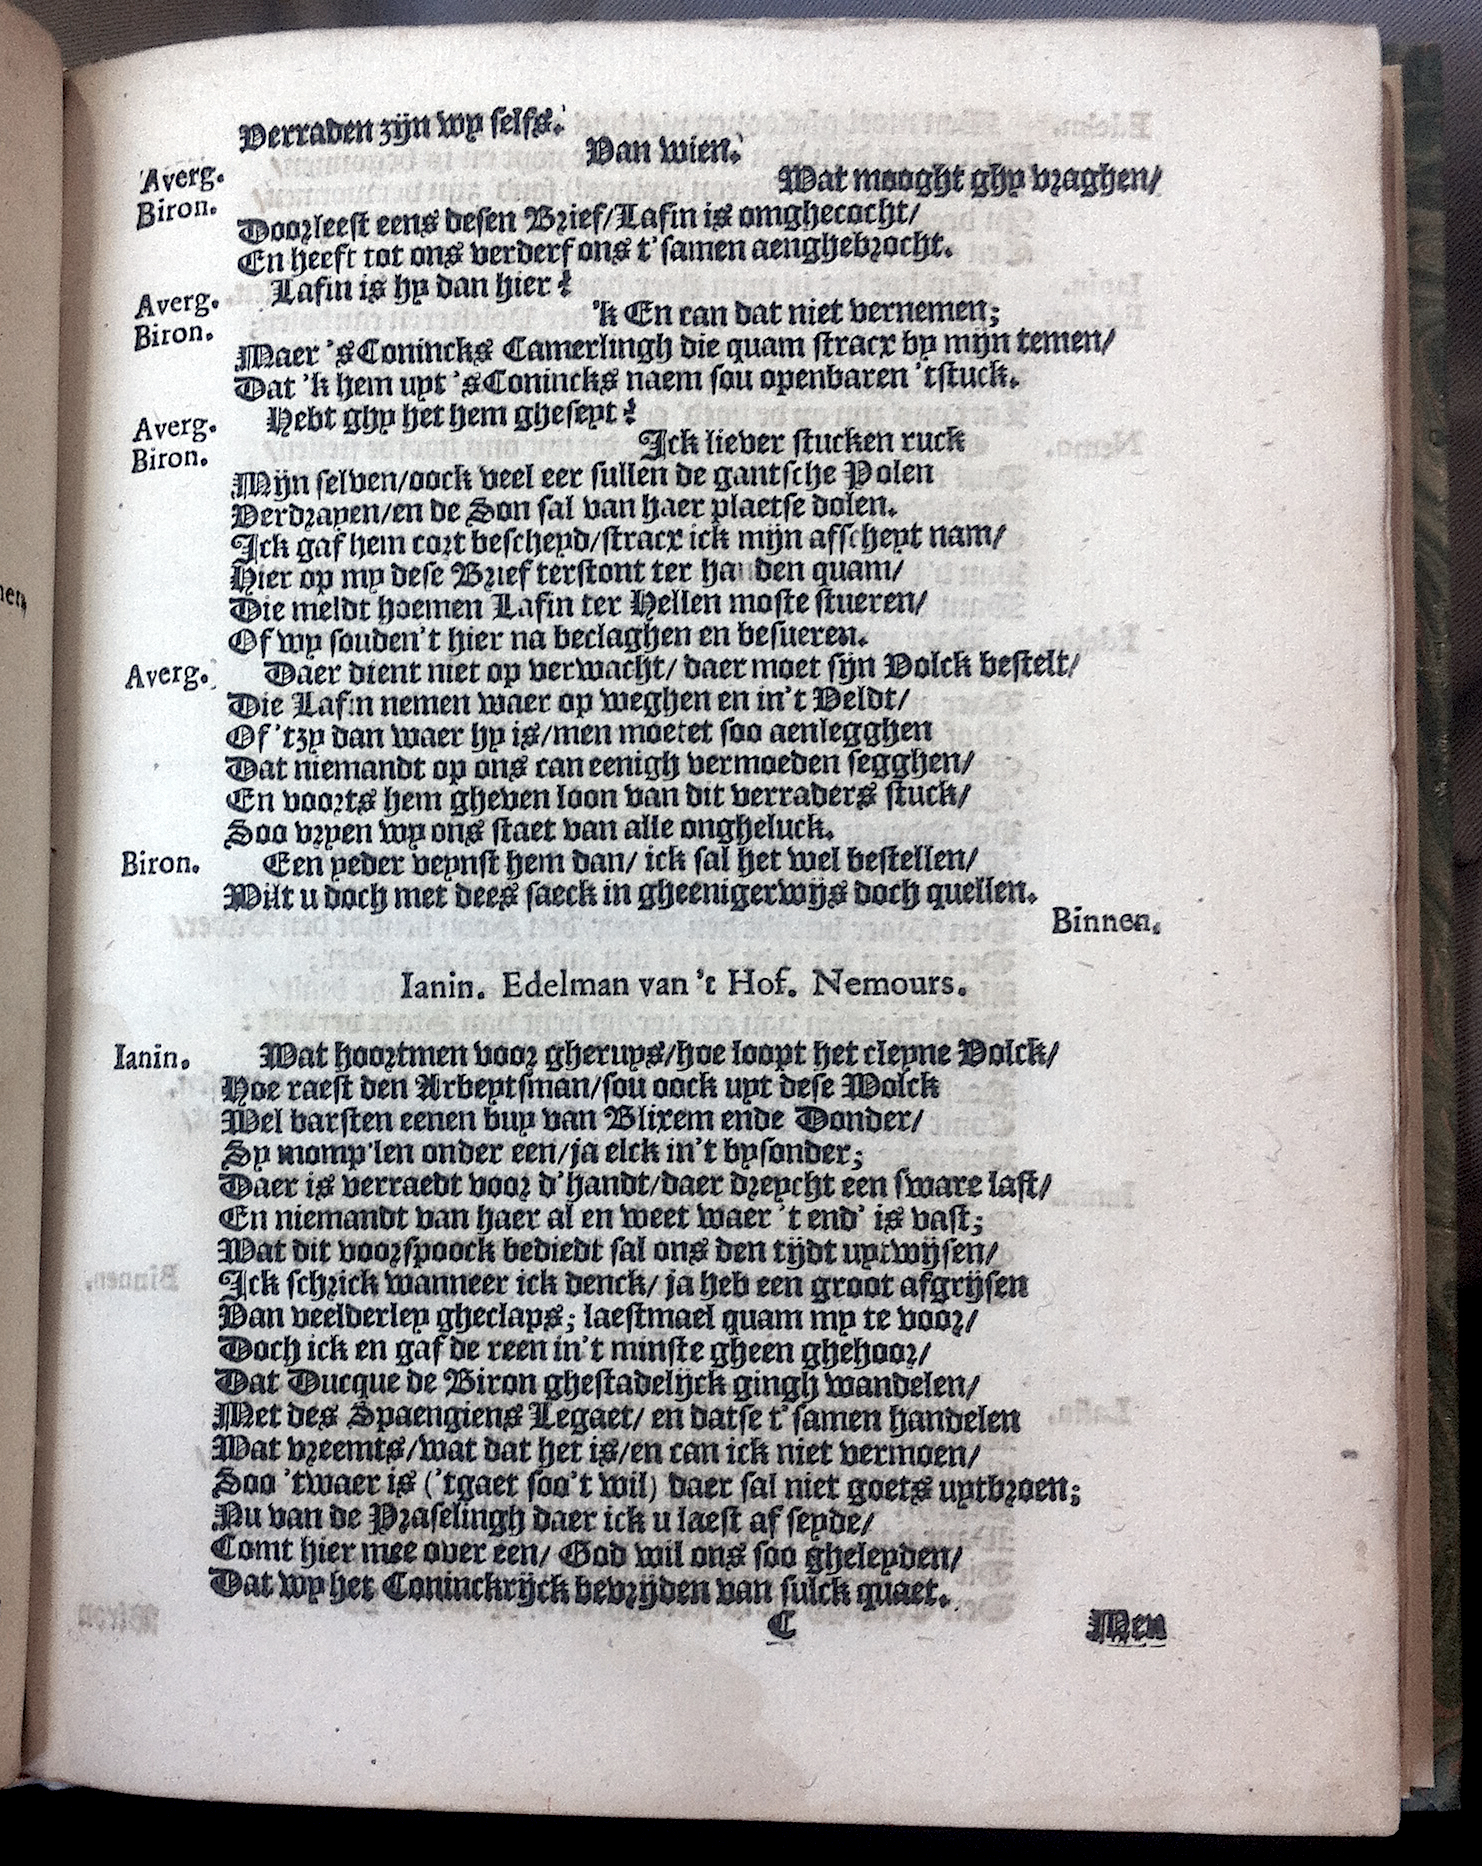 Verraden zijn wy selfs.
Averg. Van wien.
Biron. Wat mooght ghy vraghen/
Doorleest eens desen Brief/Lafin is omghecocht/
En heeft tot ons verderf ons t'samen aenghebrocht.
Averg. Lafin is hy dan hier?
Biron. 'k En can dat niet vernemen;
Maer 'sConincks Camerlingh die quam stracx by mijn temen/
Dat 'k hem uyt 'sConincks naem sou openbaren 'tstuck.
Averg. Hebt ghy het hem gheseyt?
Biron. Ick liever stucken ruck
Mijn selven/oock veel eer sullen de gantsche Polen
Verdrayen/en de Son sal van haer plaetse dolen.
Ick gaf hem cort bescheyd/stracx ick mijn afscheyt nam/
Hier op my dese Brief terstont ter handen quam/
Die meldt hoemen Lafin ter Hellen moste stueren/
Of wy souden't hier na beclaghen en besueren.
Averg. Daer dient niet op verwacht/ daer moet sijn Volck bestelt/
Die Lafin nemen waer op weghen en in't Veldt/
Of 'tzy dan waer hy is/men moetet soo aenlegghen
Dat niemandt op ons can eenigh vermoeden segghen/
En voorts hem gheven loon van dit verraders stuck/
Soo vryen wy ons staet van alle ongheluck.
Biron. Een yeder veynst hem dan/ ick sal het wel bestellen/
Wilt u doch met dees saeck in gheenigerwijs doch quellen.
Binnen.
Ianin. Edelman van 't Hof. Nemours.
Ianin. Wat hoortmen voor gheruys/hoe loopt het cleyne Volck/
Hoe raest den Arbeytsman/sou oock uyt dese Wolck
Wel barsten eenen buy van Blixem ende Donder/
Sy momp'len onder een/ja elck in't bysonder;
Daer is verraedt voor d'handt/daer dreycht een sware last/
En niemandt van haer al en weet waer 't end' is vast;
Wat dit voorspoock bediedt sal ons den tijdt uytwijsen/
Ick schrick wanneer ick denck/ ja heb een groot afgrijsen
Van veelderley gheclaps; laestmael quam my te voor/
Doch ick en gaf de reen in't minste gheen ghehoor/
Dat Ducque de Biron ghestadelijck gingh wandelen/
Met des Spaengiens Legaet/ en datse t'samen handelen
Wat vreemts/wat dat het is/en can ick niet vermoen/
Soo 'twaer is ('tgaet soo't wil) daer sal niet goets uytbroen;
Nu van de Praselingh daer ick u laest af seyde/
Comt hier mee over een/ God wil ons soo gheleyden/
Dat wy het Coninckrijck bevrijden van sulck quaet.
C Men